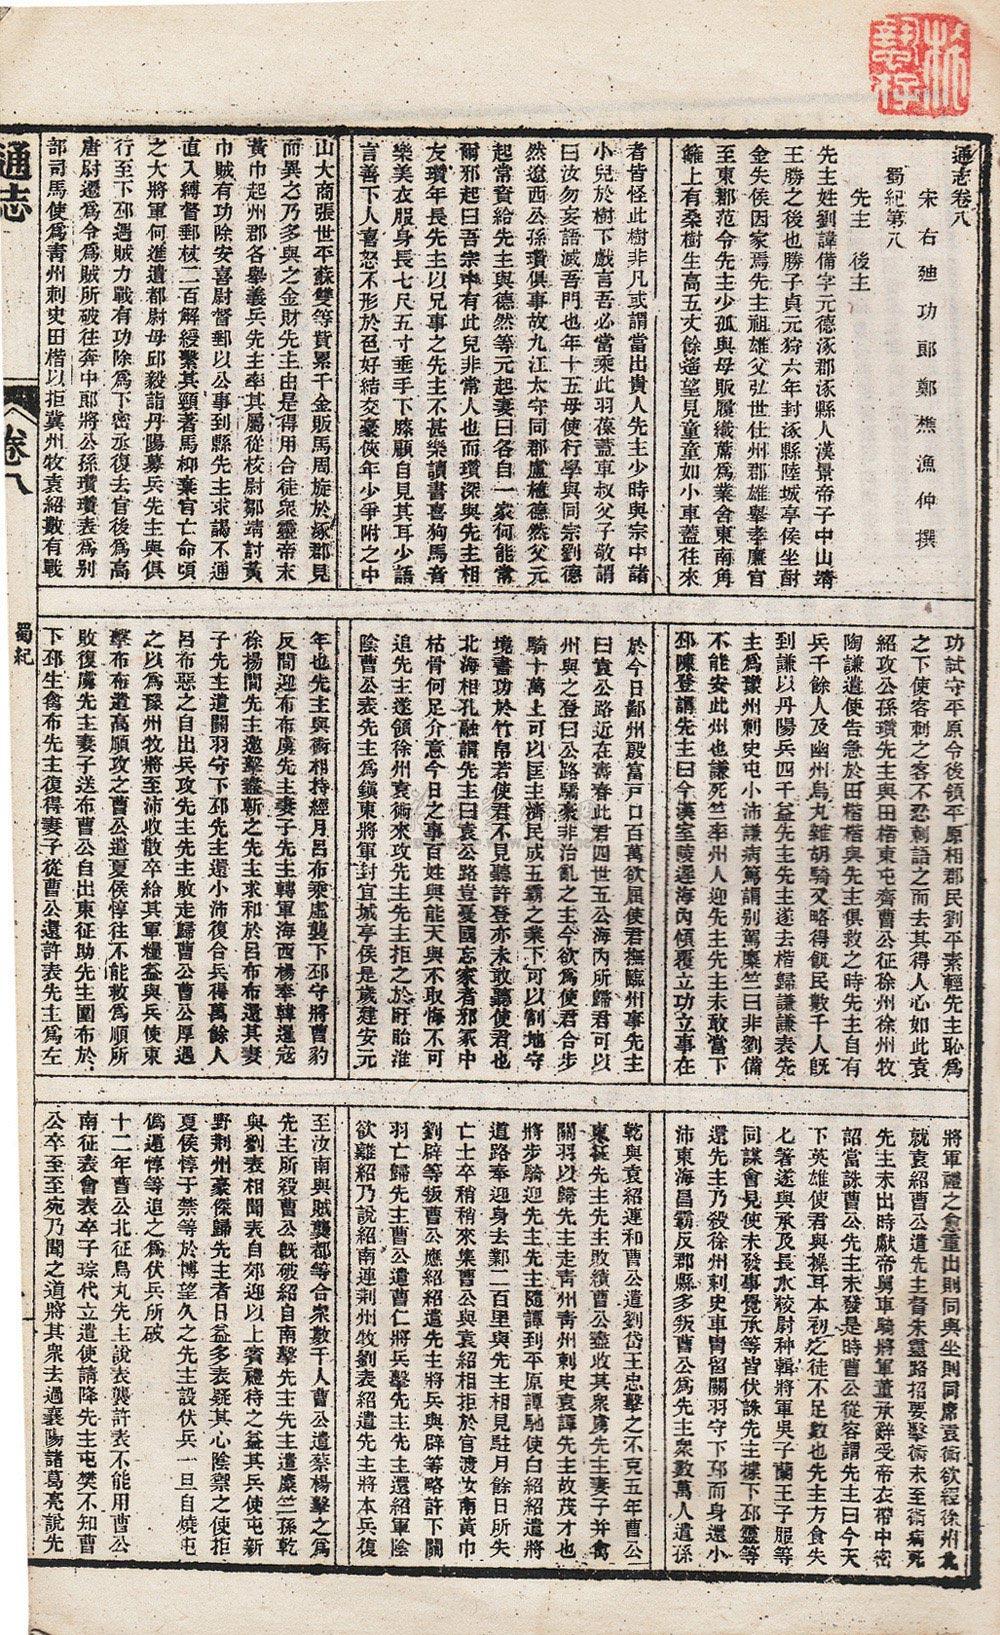 通志卷八
宋右廸功郎鄭樵漁仲撰
蜀紀第八
先主 後主
先主姓劉諱備字元德涿郡涿縣人漢景帝子中山靖
王勝之後也勝子貞元狩六年封涿縣陸城亭侯坐酎
金失侯因家焉先主祖雄父弘世仕州郡雄舉孝廉官
至東郡范令先主少孤與母販履織蓆為業舍東南角
籬上有桑樹生高五丈餘遙望見童童如小車蓋往來
者皆怪此樹非凡或謂當出貴人先主少時與宗中諸
小兒於樹下戲言吾必當乘此羽葆蓋車叔父子敬謂
曰汝勿妄語滅吾門也年十五母使行學與同宗劉德
然遼西公孫瓚俱事故九江太守同郡盧植德然父元
起常資給先主與德然等元起妻曰各自一家何能常
爾邪起曰吾宗中有此兒非常人也而瓚深與先主相
友瓚年長先主以兄事之先主不甚樂讀書喜狗馬音
樂美衣服身長七尺五寸垂手下膝顧自見其耳少語
言善下人喜怒不形於色好結交豪俠年少爭附之中
山大商張世平蘇雙等貲累千金販馬周旋於涿郡見
而異之乃多與之金財先主由是得用合徒衆靈帝末
黃巾起州郡各舉義兵先主率其屬從校尉鄒靖討黃
巾賊有功除安喜尉督郵以公事到縣先主求謁不通
直入縛督郵杖二百解綬繫其頸著馬枊棄官亡命頃
之大將軍何進遣都尉毋邱毅詣丹陽募兵先主與俱
行至下邳遇賊力戰有功除為下密丞復去官後為高
唐尉遷為令為賊所破往奔中郎將公孫瓚瓚表為别
部司馬使為青州刺史田楷以拒冀州牧袁紹數有戰
功試守平原令後領平原相郡民劉平素輕先主恥為
之下使客刺之客不忍刺語之而去其得人心如此袁
紹攻公孫瓚先主與田楷東屯齊曹公征徐州徐州牧
陶謙遣使告急於田楷楷與先主俱救之時先主自有
兵千餘人及幽州烏丸雜胡騎又略得飢民數千人旣
到謙以丹陽兵四千益先主先主遂去楷歸謙謙表先
主為豫州刺史屯小沛謙病篤謂別駕麋竺曰非劉備
不能安此州也謙死竺率州人迎先主先主未敢當下
邳陳登謂先主曰今漢室陵遲海內傾覆立功立事在
於今日鄙州殷富戸口百萬欲屈使君撫臨州事先主
曰袁公路近在壽春此君四世五公海內所歸君可以
州與之登曰公路驕豪非治亂之主今欲為使君合步
騎十萬上可以匡主濟民成五霸之業下可以割地守
境書功於竹帛若使君不見聽許登亦未敢聽使君也
北海相孔融謂先主曰袁公路豈憂國忘家者邪冢中
枯骨何足介意今日之事百姓與能天與不取悔不可
追先主遂領徐州袁術來攻先主先主拒之於盱眙淮
陰曹公表先主為鎮東將軍封宜城亭侯是歲建安元
年也先主與術相持經月呂布乘虛襲下邳守將曹豹
反間迎布布虜先主妻子先主轉軍海西楊奉韓暹寇
徐揚間先主邀擊盡斬之先主求和於呂布布還其妻
子先主遣關羽守下邳先主還小沛復合兵得萬餘人
呂布惡之自出兵攻先主先主敗走歸曹公曹公厚遇
之以為豫州牧將至沛收散卒給其軍糧益與兵使東
擊布布遣高順攻之曹公遣夏侯惇往不能救為順所
敗復虜先主妻子送布曹公自出東征助先主圍布於
下邳生禽布先主復得妻子從曹公還許表先主為左
將軍禮之愈重出則同輿坐則同席袁術欲經徐州北
就袁紹曹公遣先主督朱靈路招要擊術未至術病死
先主未出時獻帝舅車騎將軍董承辭受帝衣帶中密
詔當誅曹公先主未發是時曹公從容謂先主曰今天
下英雄使君與操耳本初之徒不足數也先主方食失
匕箸遂與承及長水校尉种輯將軍吳子蘭王子服等
同謀會見使未發事覺承等皆伏誅先主據下邳靈等
還先主乃殺徐州刺史車冑留關羽守下邳而身還小
沛東海昌霸反郡縣多叛曹公為先主衆數萬人遣孫
乾與袁紹連和曹公遣劉岱王忠擊之不克五年曹公
東征先主先主敗績曹公盡收其衆虜先主妻子并禽
關羽以歸先主走青州青州刺史袁譚先主故茂才也
將步騎迎先主先主隨譚到平原譚馳使白紹紹遣將
道路奉迎身去鄴二百里與先主相見駐月餘日所失
亡士卒稍稍來集曹公與袁紹相拒於官渡汝南黃巾
劉辟等叛曹公應紹紹遣先主將兵與辟等略許下關
羽亡歸先主曹公遣曹仁將兵擊先主先主還紹軍陰
欲離紹乃說紹南連荆州牧劉表紹遣先主將本兵復
至汝南與賊龔都等合衆數千人曹公遣蔡楊擊之為
先主所殺曹公旣破紹自南擊先主先主遣麋竺孫乾
與劉表相聞表自郊迎以上賓禮待之益其兵使屯新
野荆州豪傑歸先主者日益多表疑其心陰禦之使拒
夏侯惇于禁等於博望久之先主設伏兵一旦自燒屯
僞遁惇等追之為伏兵所破
十二年曹公北征烏丸先主說表襲許表不能用曹公
南征表會表卒子琮代立遣使請降先主屯樊不知曹
公卒至至宛乃聞之遂將其衆去過襄陽諸葛亮說先
通志
卷八
蜀紀